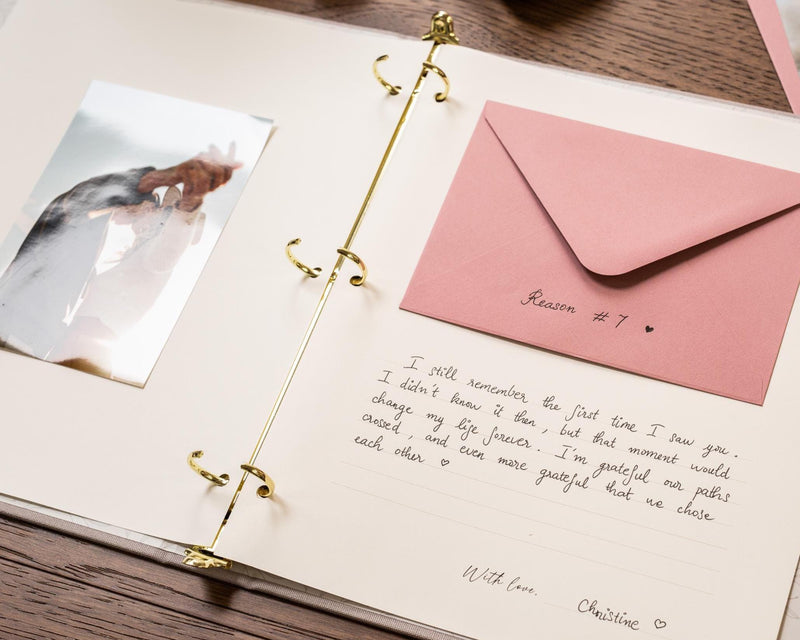 Reason # 7 ♥
I still remember the first time I saw you.
I didn't know it then, but that moment would
change my life forever. I'm grateful our paths
crossed, and even more grateful that we chose
each other ♡
With love,
Christine ♡